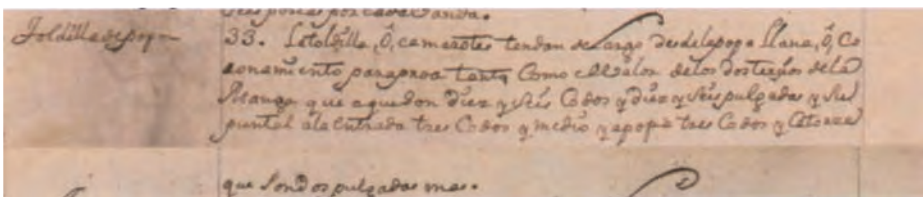 Seis portas por cada Vanda.
Toldilla de popa
33. La toldilla, ó, camarotes tendan de Largo desde la popa llana, ó, Co
ronamiento para proa tanto Como el Valor de los dos terzios de la
Manga que aquedon diez y seis Codos y diez y seis pulgadas y su
puntal ala entrada tres Codos y medio y apopa tres Codos y Catorze
que son dos pulgadas mas.